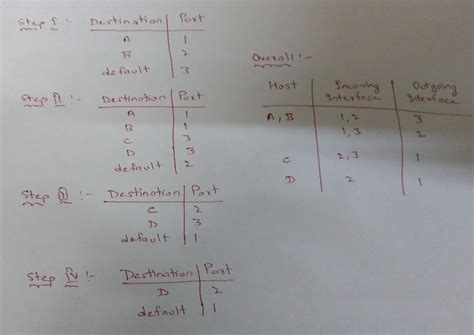 Step I :- Destination Port
A 1
B 2
default 3
Step II :- Destination Port
A 1
B 1
C 3
D 3
default 2
Step III :- Destination Port
C 2
D 3
default 1
Step IV :- Destination Port
D 2
default 1
Overall :-
Host Incoming Interface Outgoing Interface
A, B 1,2 3
1,3 2
C 2,3 1
D 2 1